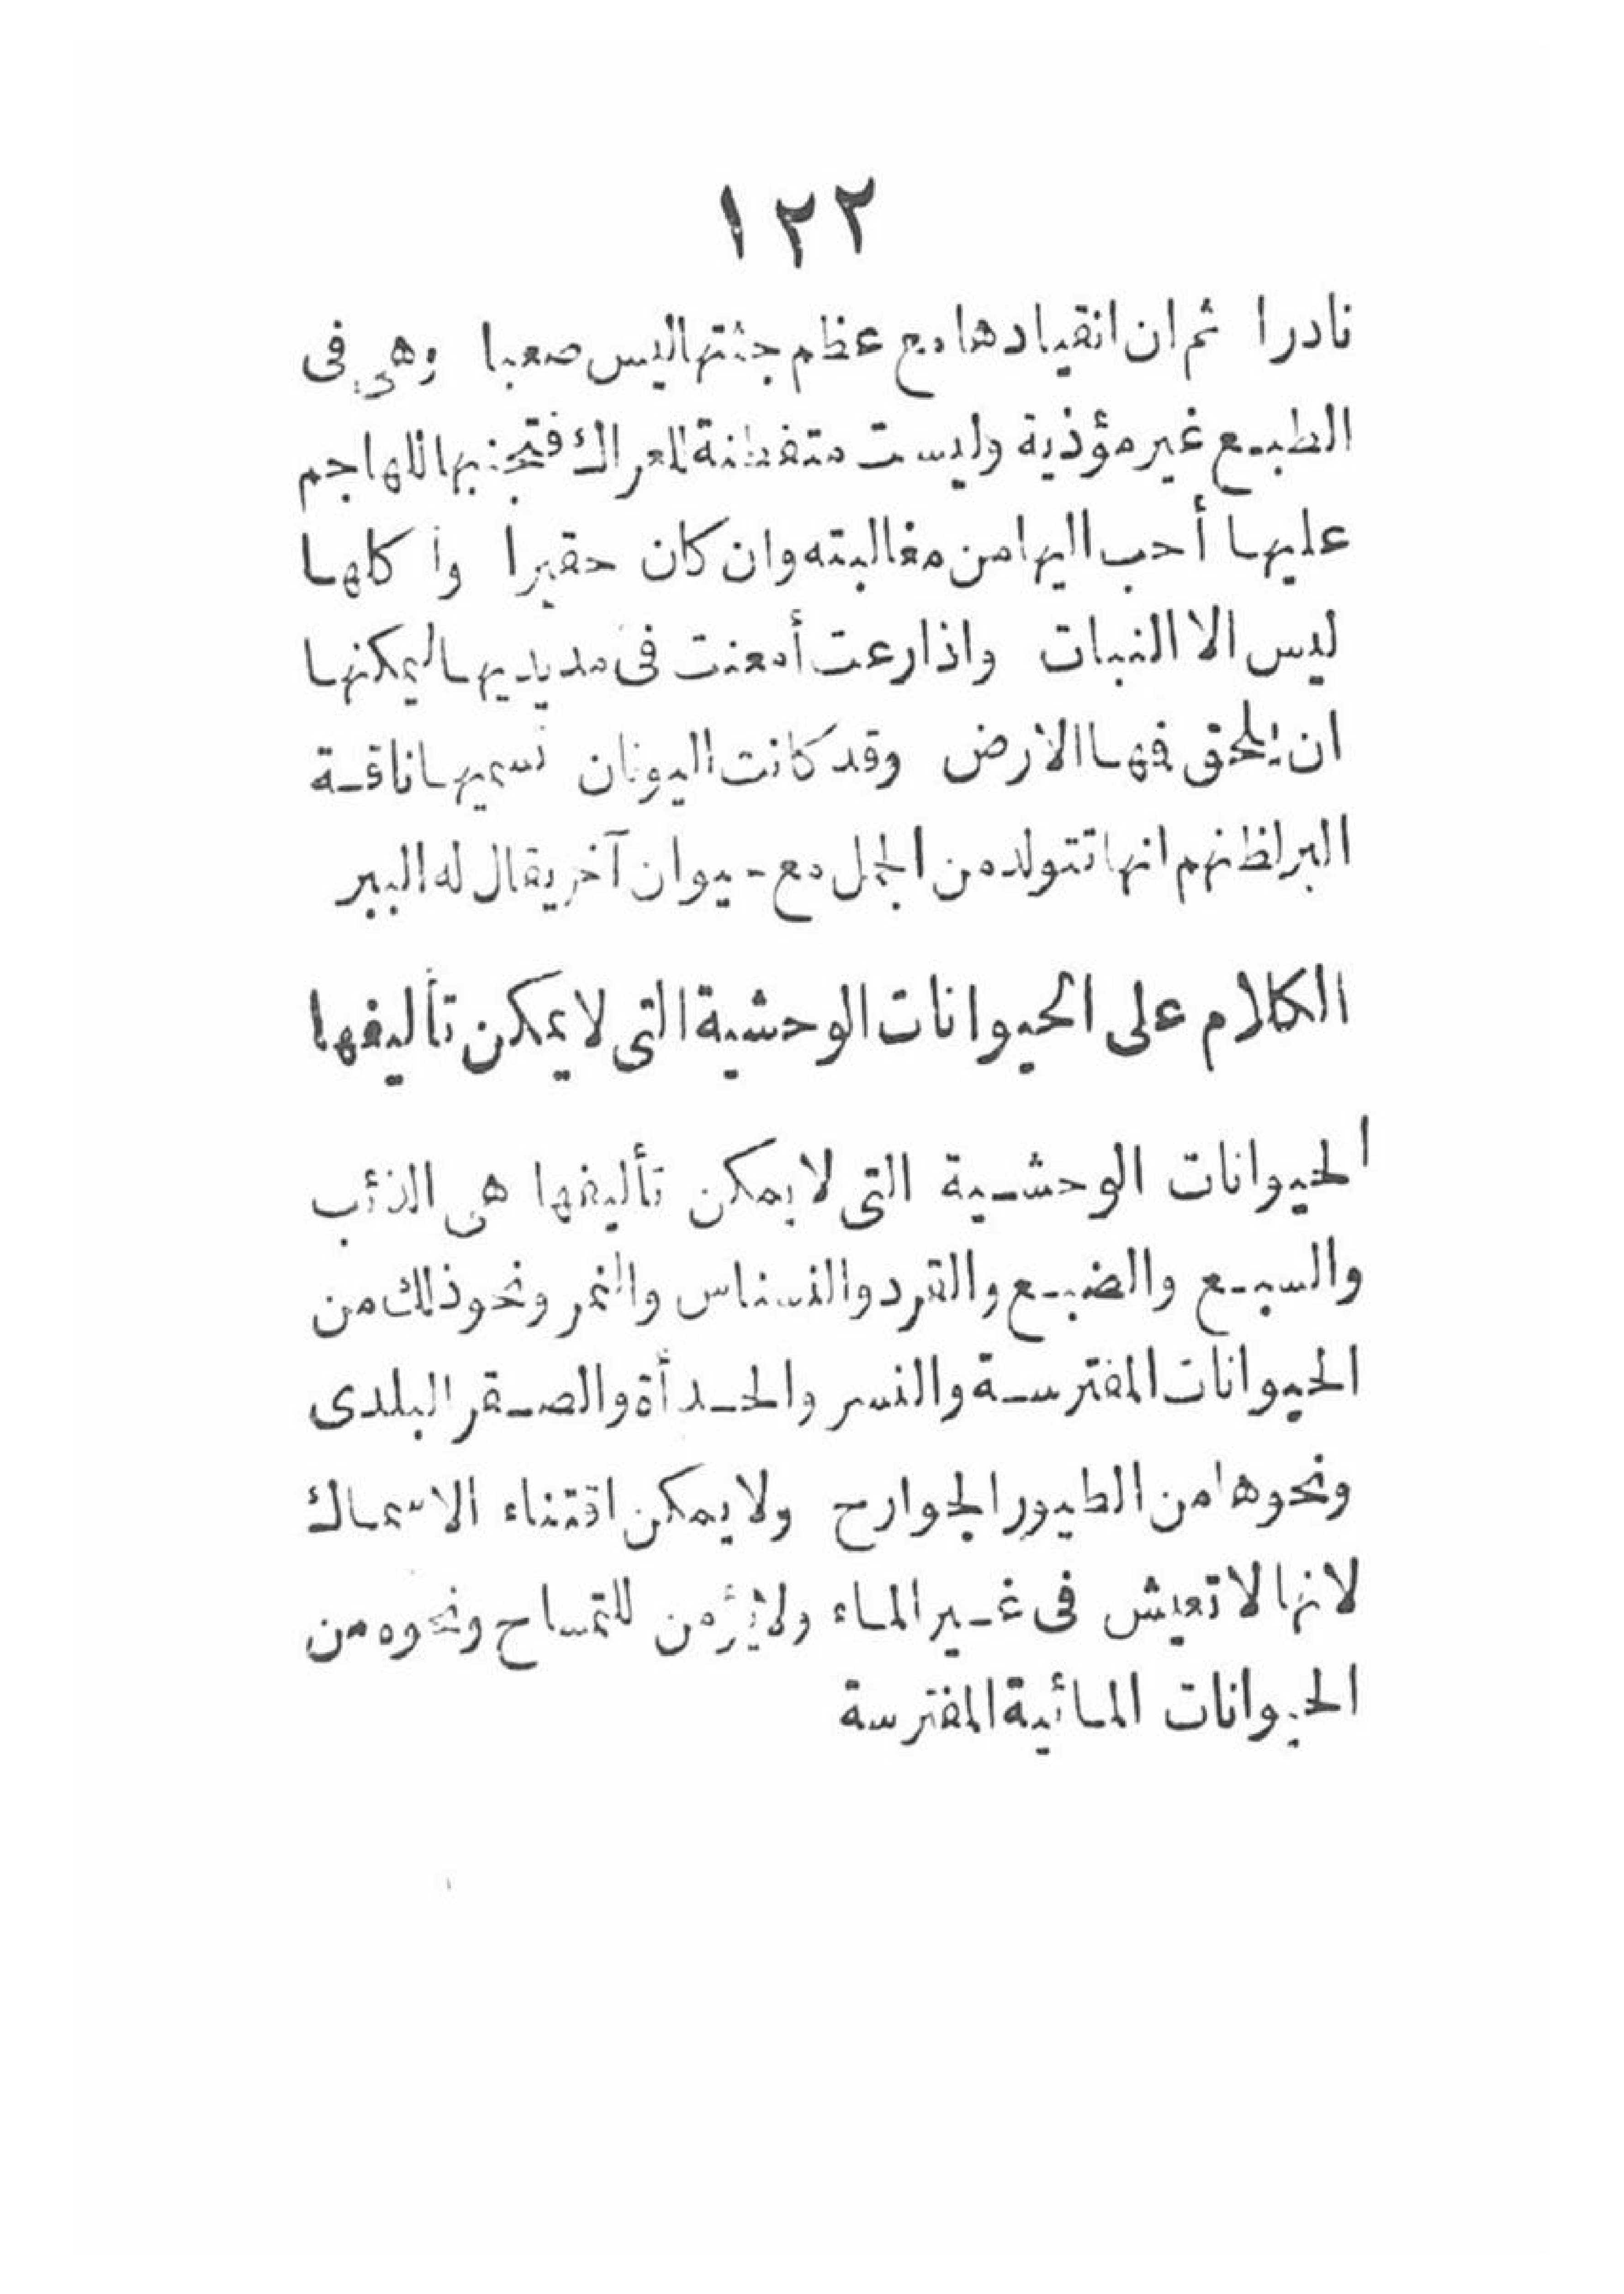 ١٢٢
نادرا ثم ان انقيادها مع عظم جثتها ليس صعبا وهى فى
الطبع غير مؤذية وليست متفطنة للعراك فتجنبها للهاجم
عليها أحب اليها من مغالبته وان كان حقيرا وأكلها
ليس الا النبات واذا رعت أمعنت فى مد يديها ليمكنها
ان يلحق فهها الارض وقد كانت اليونان تسميها ناقة
البر لظنهم انها تتولد من الجمل مع حيوان آخر يقال له الببر
الكلام على الحيوانات الوحشية التى لا يمكن تأليفها
الحيوانات الوحشية التى لا يمكن تأليفها هى الذئب
والسبع والضبع والقرد والنسناس والنمر ونحو ذلك من
الحيوانات المفترسة والنسر والحدأة والصقر البلدى
ونحوها من الطيور الجوارح ولا يمكن اقتناء الاسماك
لانها لا تعيش فى غير الماء ولا يؤمن للتمساح ونحوه من
الحيوانات المائية المفترسة